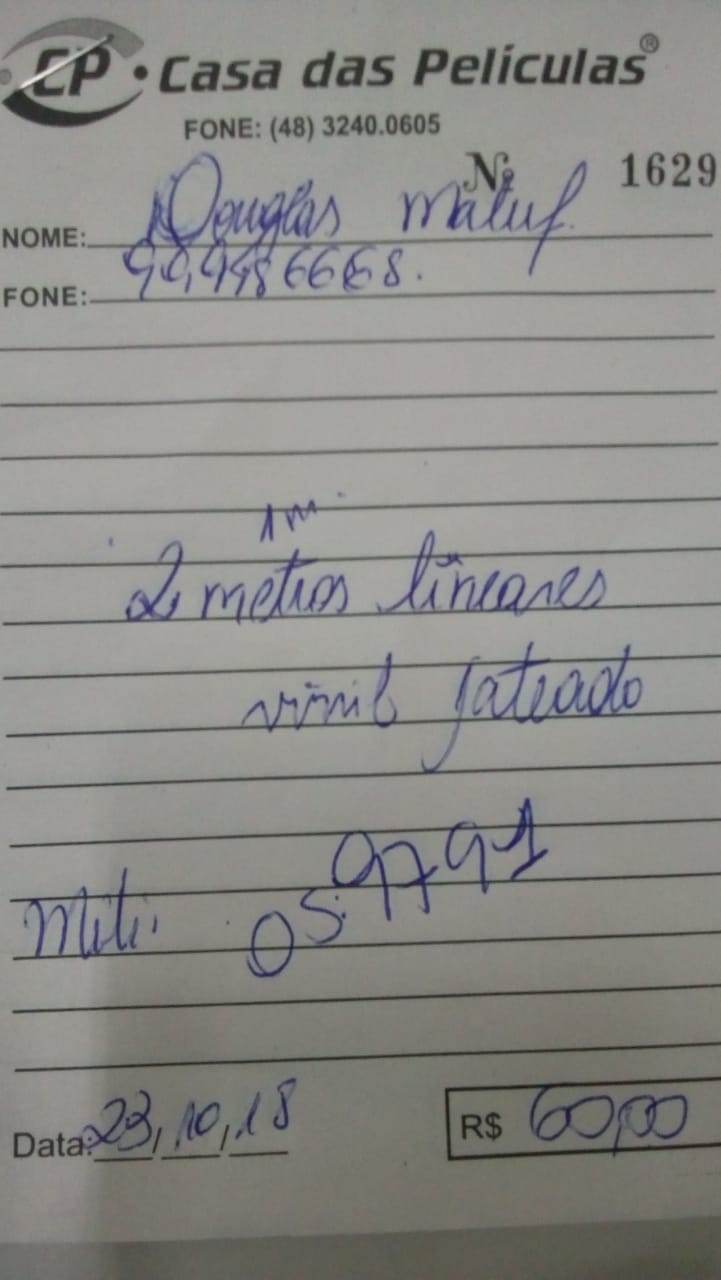 CP • Casa das Películas®
FONE: (48) 3240.0605
Nº 1629
NOME: Douglas Maluf.
FONE: 999486668.
1m.
2 metros lineares
vinil jateado
OS: 9791
Data: 23/10/18
R$ 60,00